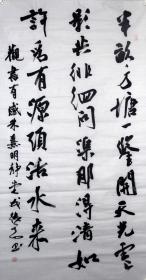 半畝方塘一鑒開天光雲
影共徘徊問渠那得清如
許為有源頭活水來
觀書有感朱熹